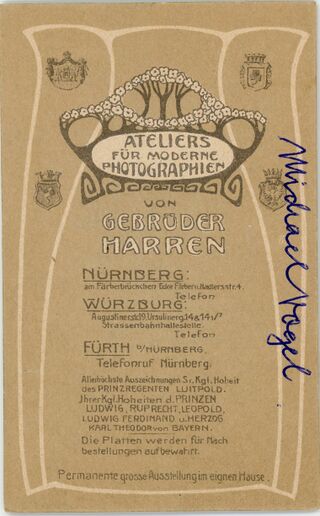 ATELIERS
FÜR MODERNE
PHOTOGRAPHIEN
VON
GEBRÜDER
HARREN
NÜRNBERG:
am Färberbrückchen Ecke Färber u.Adlersstr.4.
Telefon
WÜRZBURG:
Augustinerstr.19, Ursulinerg.
Strassenbahnhaltestelle.
Telefon
FÜRTH b/NÜRNBERG,
Telefonruf Nürnberg.
Allerhöchste Auszeichnungen Sr. Kgl. Hoheit
des PRINZREGENTEN LUITPOLD.
Jhrer Kgl. Hoheiten d. PRINZEN
LUDWIG, RUPRECHT, LEOPOLD,
LUDWIG FERDINAND u. HERZOG
KARL THEODOR von BAYERN.
Die Platten werden für Nach
bestellungen aufbewahrt.
Permanente grosse Ausstellung im eignen Hause.
Michael Vogel